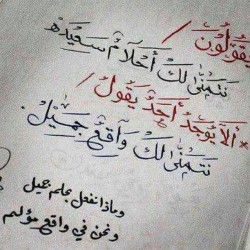 يقولون /
نتمنى لك أحلامٌ سعيده
* ألا يوجد أحدٌ يقول /
نتمنى لك واقعٌ جميل.
وماذا نفعل بحلم جميل
ونحن في واقع مؤلم